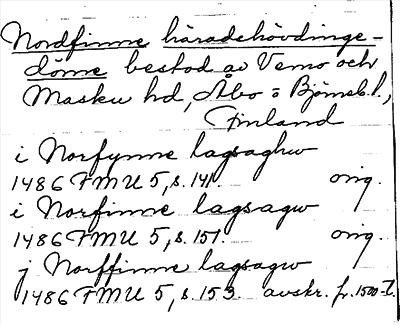 Nordfinne häradshövdinge-
döme bestod av Vemo och
Masku hd, Åbo o Björneb. l.,
Finland
i Norfynne lagsaghw
1486 FMU 5, s. 141. orig.
i Norfinne lagsagw
1486 FMU 5, s. 151. orig.
j Norffinne lagsagw
1486 FMU 5, s. 153. avskr. fr. 1500-t.